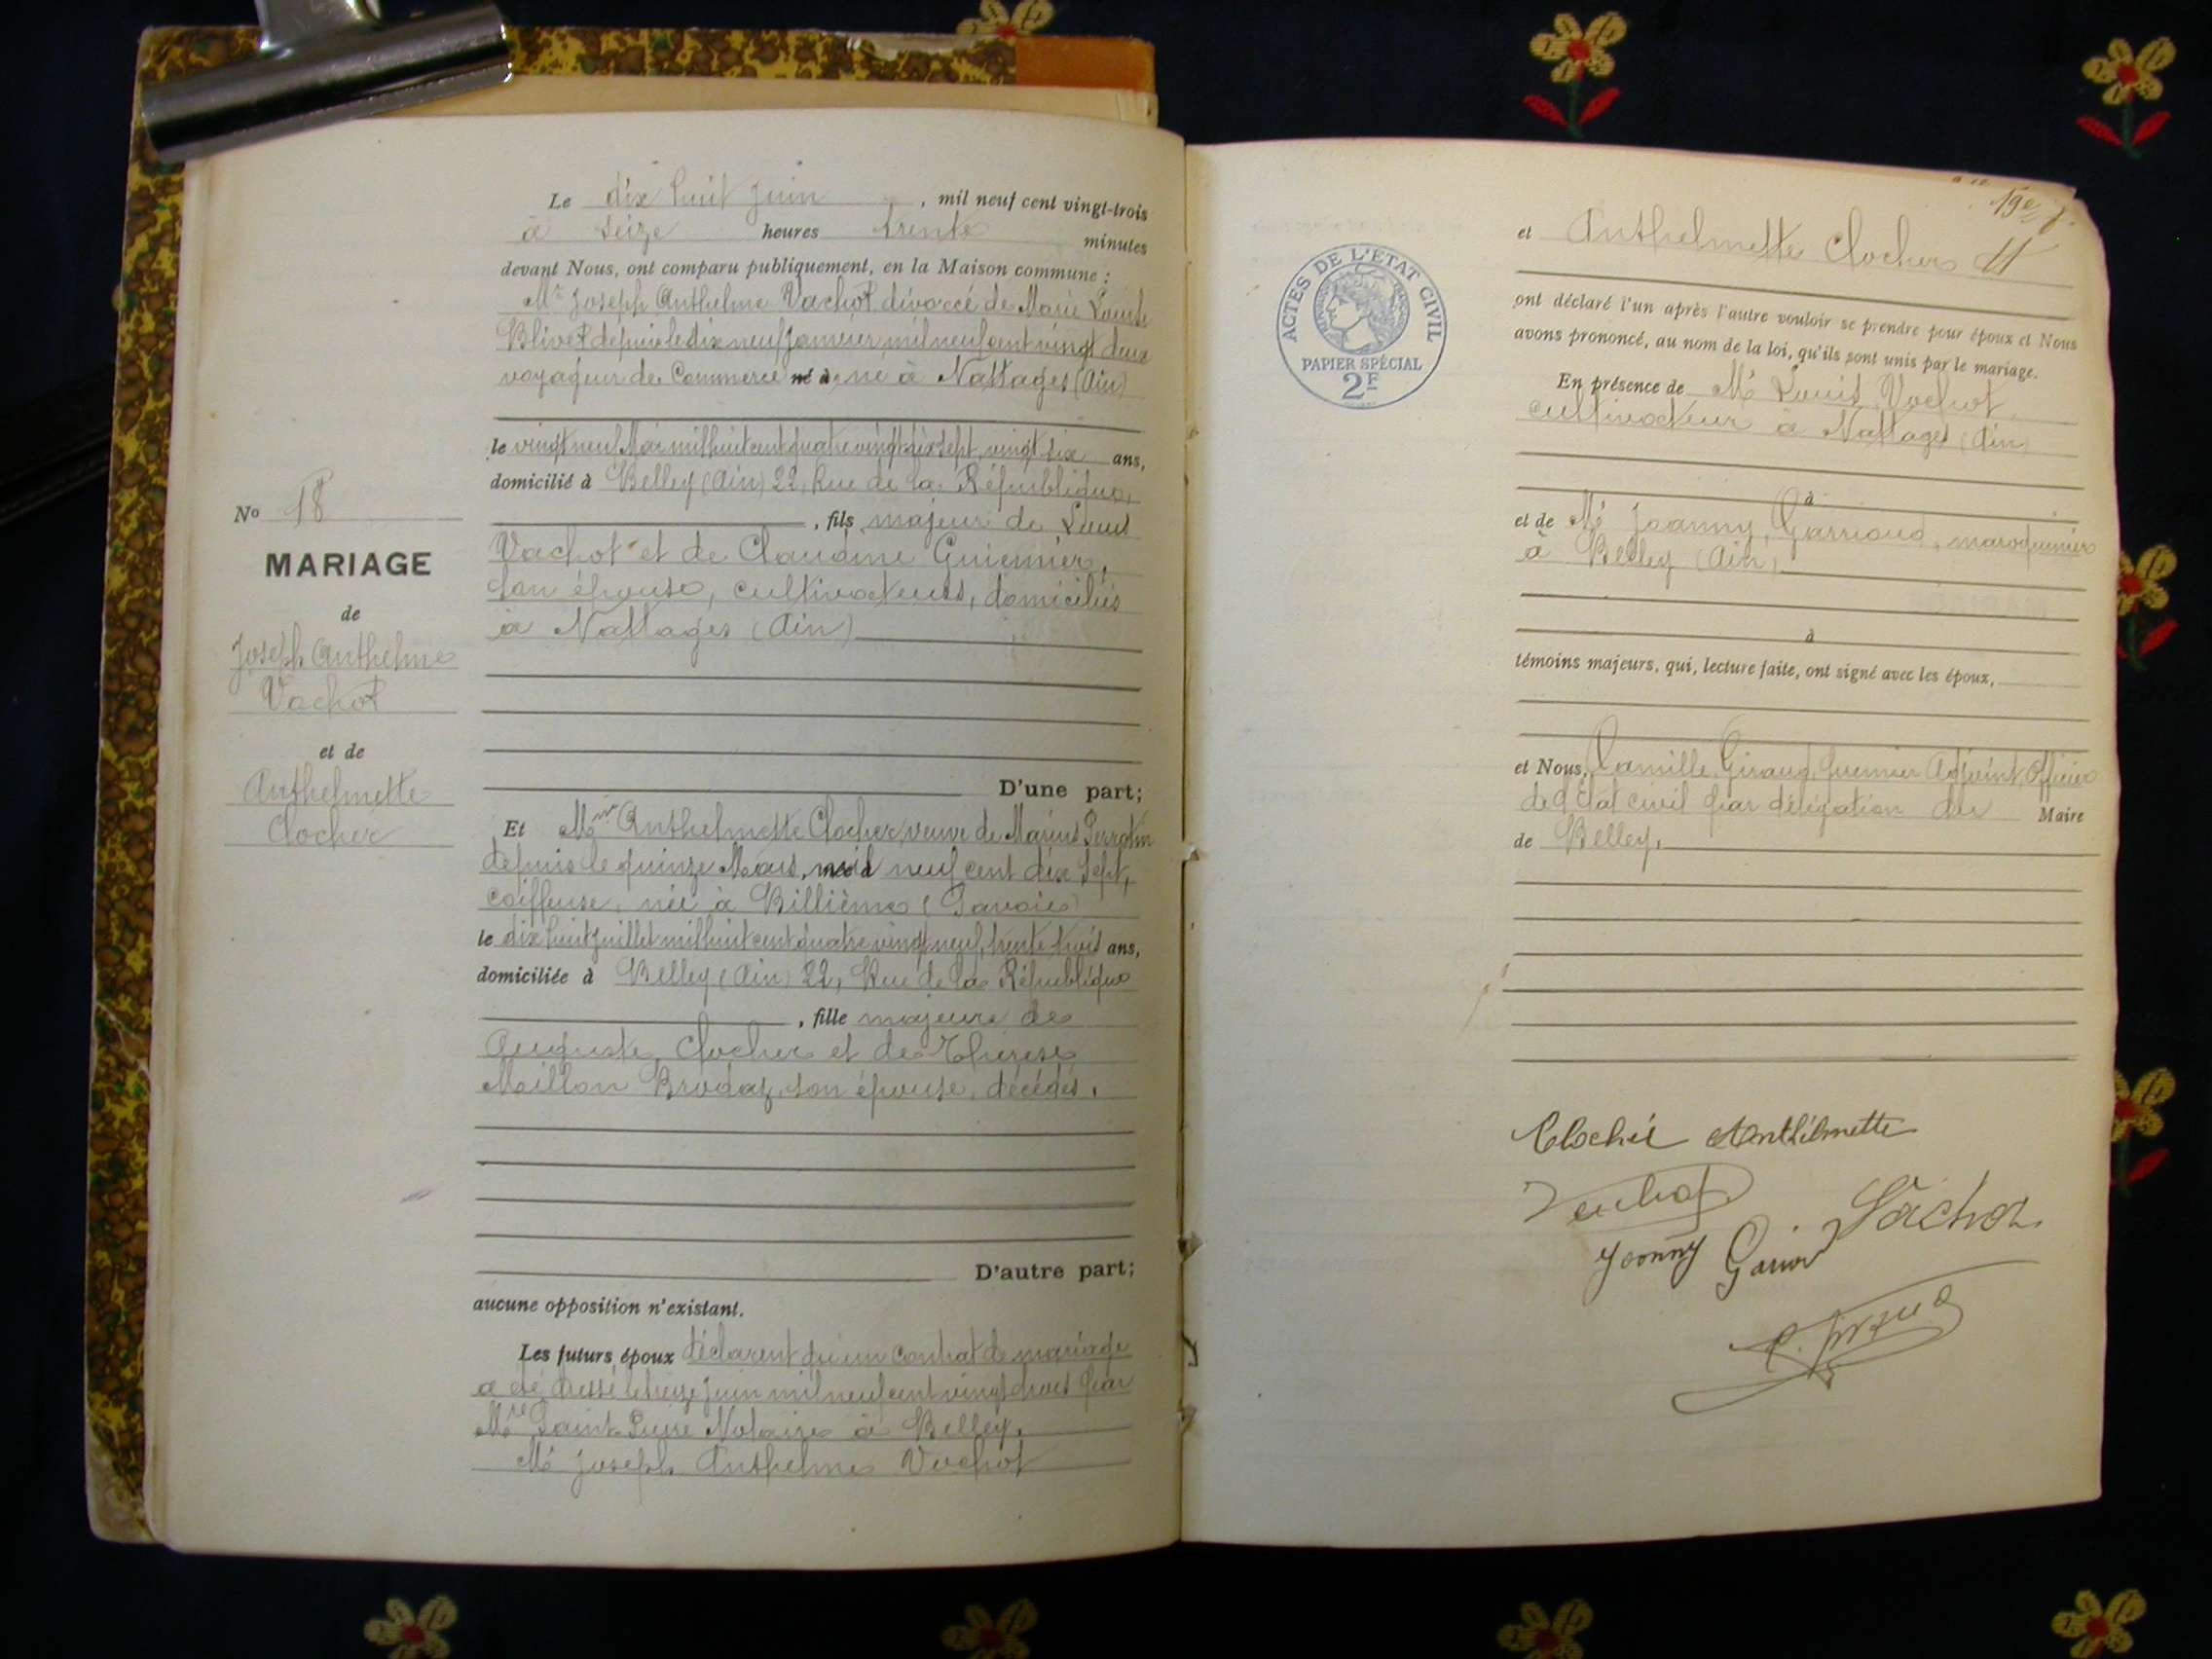 Le dix huit juin, mil neuf cent vingt-trois
à seize heures trente minutes
devant Nous, ont comparu publiquement, en la Maison commune :
Mr Joseph Anthelme Vachot divorcé de Marie Louise
Blivet depuis le dix neuf janvier mil neuf cent vingt deux
voyageur de Commerce né à Nattages (Ain)
le vingt neuf Mai mil huit cent quatre vingt dix sept, vingt six ans,
domicilié à Belley (Ain) 22, Rue de la République,
, fils majeur de Louis
Vachot et de Claudine Guiennier,
son épouse, cultivateurs, domiciliés
à Nattages (Ain)
No 18
MARIAGE
de
Joseph Anthelme
Vachot
et de
Anthelmette
Clocher
D'une part;
Et Mme Anthelmette Clocher, veuve de Marius Perrotin
depuis le quinze Mars, mil neuf cent dix sept,
coiffeuse, née à Billième (Savoie)
le dix huit juillet mil huit cent quatre vingt neuf, trente trois ans,
domiciliée à Belley (Ain) 22, Rue de la République
, fille majeure de
Auguste Clocher et de Thérèse
Millon Brodaz, son épouse, décédés.
D'autre part;
aucune opposition n'existant.
Les futurs époux déclarent qu'un contrat de mariage
a été dressé le treize juin mil neuf cent vingt trois par
Mre Saint Pierre Notaire à Belley.
Mr Joseph Anthelme Vachot
19e f.
ACTES DE L'ÉTAT CIVIL
PAPIER SPÉCIAL
2F
et Anthelmette Clocher
ont déclaré l'un après l'autre vouloir se prendre pour époux et Nous
avons prononcé, au nom de la loi, qu'ils sont unis par le mariage.
En présence de Mr Louis Vachot
cultivateur à Nattages (Ain)
à
et de Mr Joanny Garrioud, maroquinier
à Belley (Ain)
à
témoins majeurs, qui, lecture faite, ont signé avec les époux,
et Nous, Camille Giraud, premier Adjoint, Officier
de l'Etat civil par délégation du Maire
de Belley.
Clocher Anthelmette
Vachot
Vachot
Joanny Garriou
C. Giraud